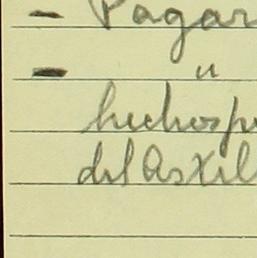 - Pagar
- "
hechos p
del Astil